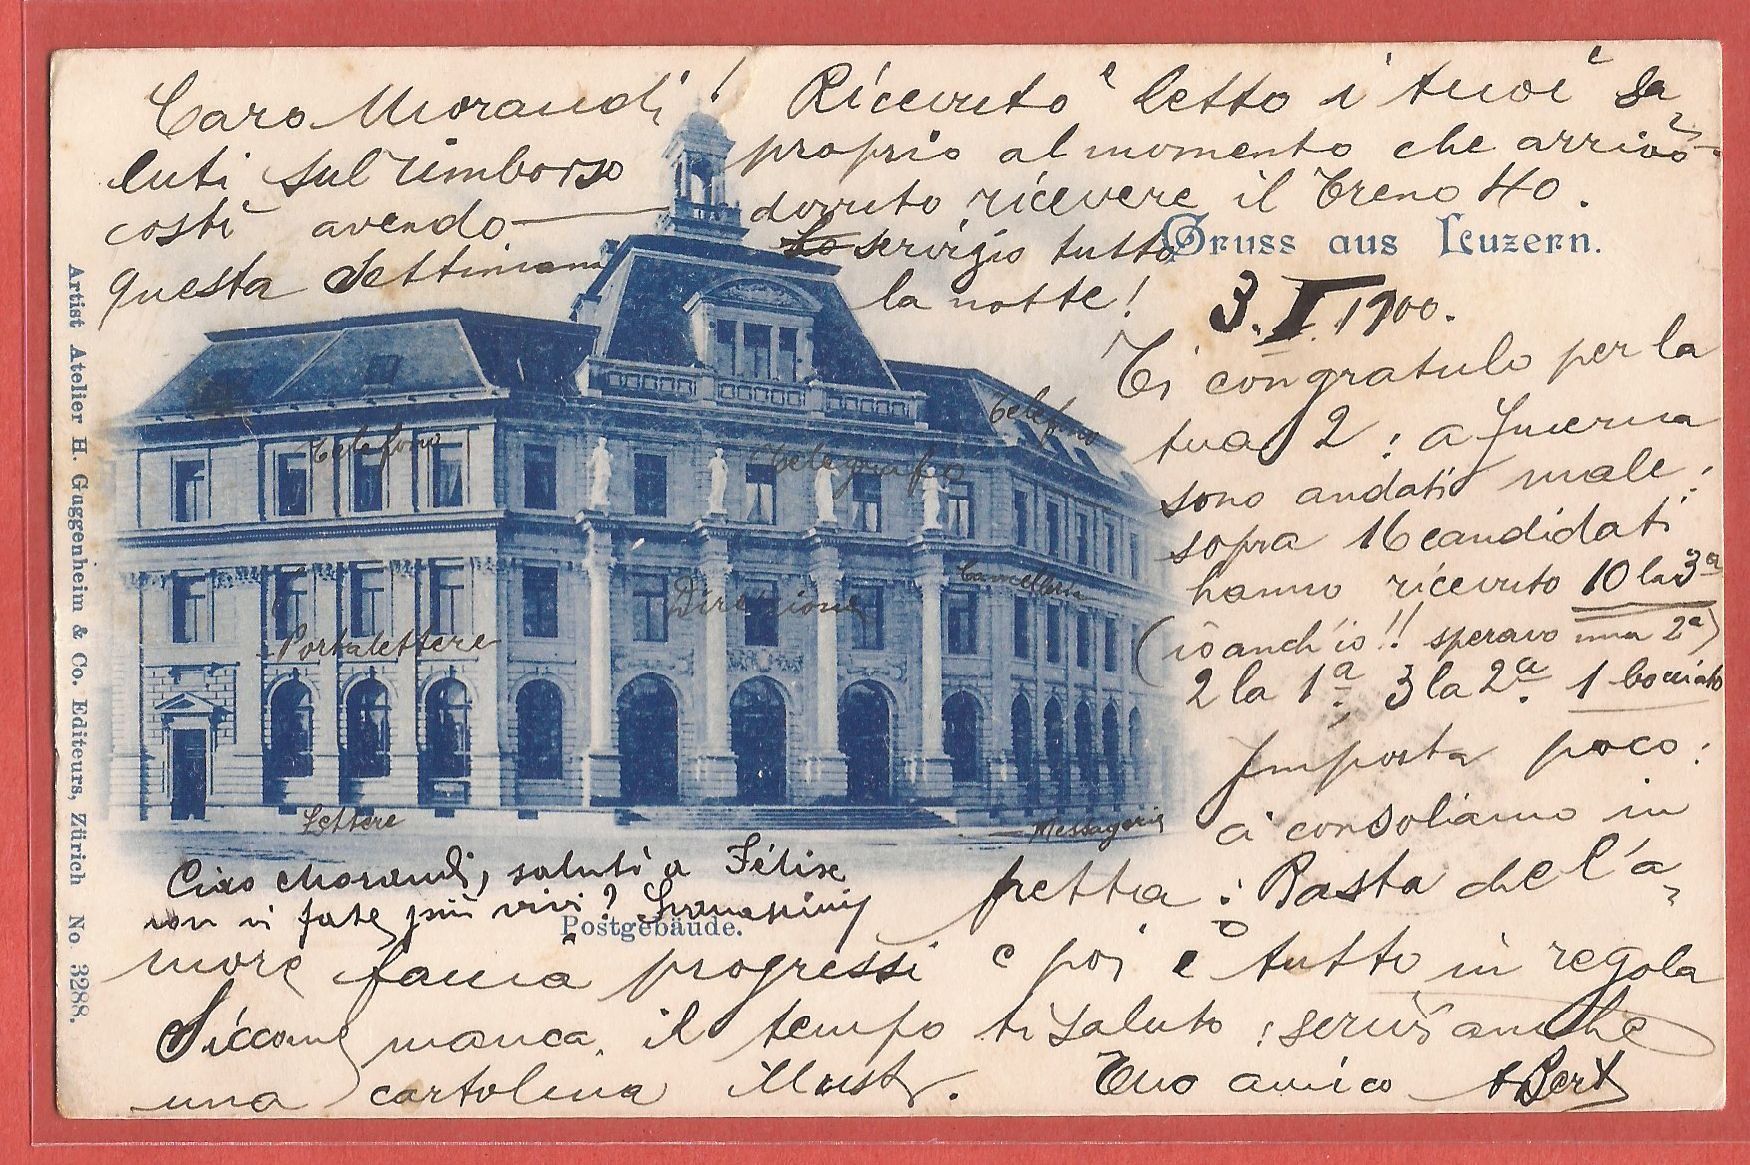 Caro Morandi! Ricevuto e letto i tuoi sa-
luti sul rimborso proprio al momento che arrivò
costì avendo dovuto ricevere il Treno 40.
questa settimana servizio tutta
la notte!
Gruss aus Luzern.
3. I. 1900.
Ti congratulo per la
tua 2: a
sono andati male:
sopra 16 candidati
hanno ricevuto 10 la 3a
(io anch'io!! speravo una 2a)
2 la 1a. 3 la 2a. 1 bocciato
Importa poco:
ci consoliamo in
fretta: Basta che l'a-
more faccia progressi e poi è tutto in regola
Siccome manca il tempo ti saluto: scrivi anche
una cartolina illustr. Tuo amico
Telefono
Telegrafo
Telefono
Portalettere
Direzione
Cancelleria
Lettere
Messagerie
Ciao Morandi, saluti a Felise
non vi fate più vivi?
Postgebäude.
Artist Atelier H. Guggenheim & Co. Editeurs, Zürich No. 3288.